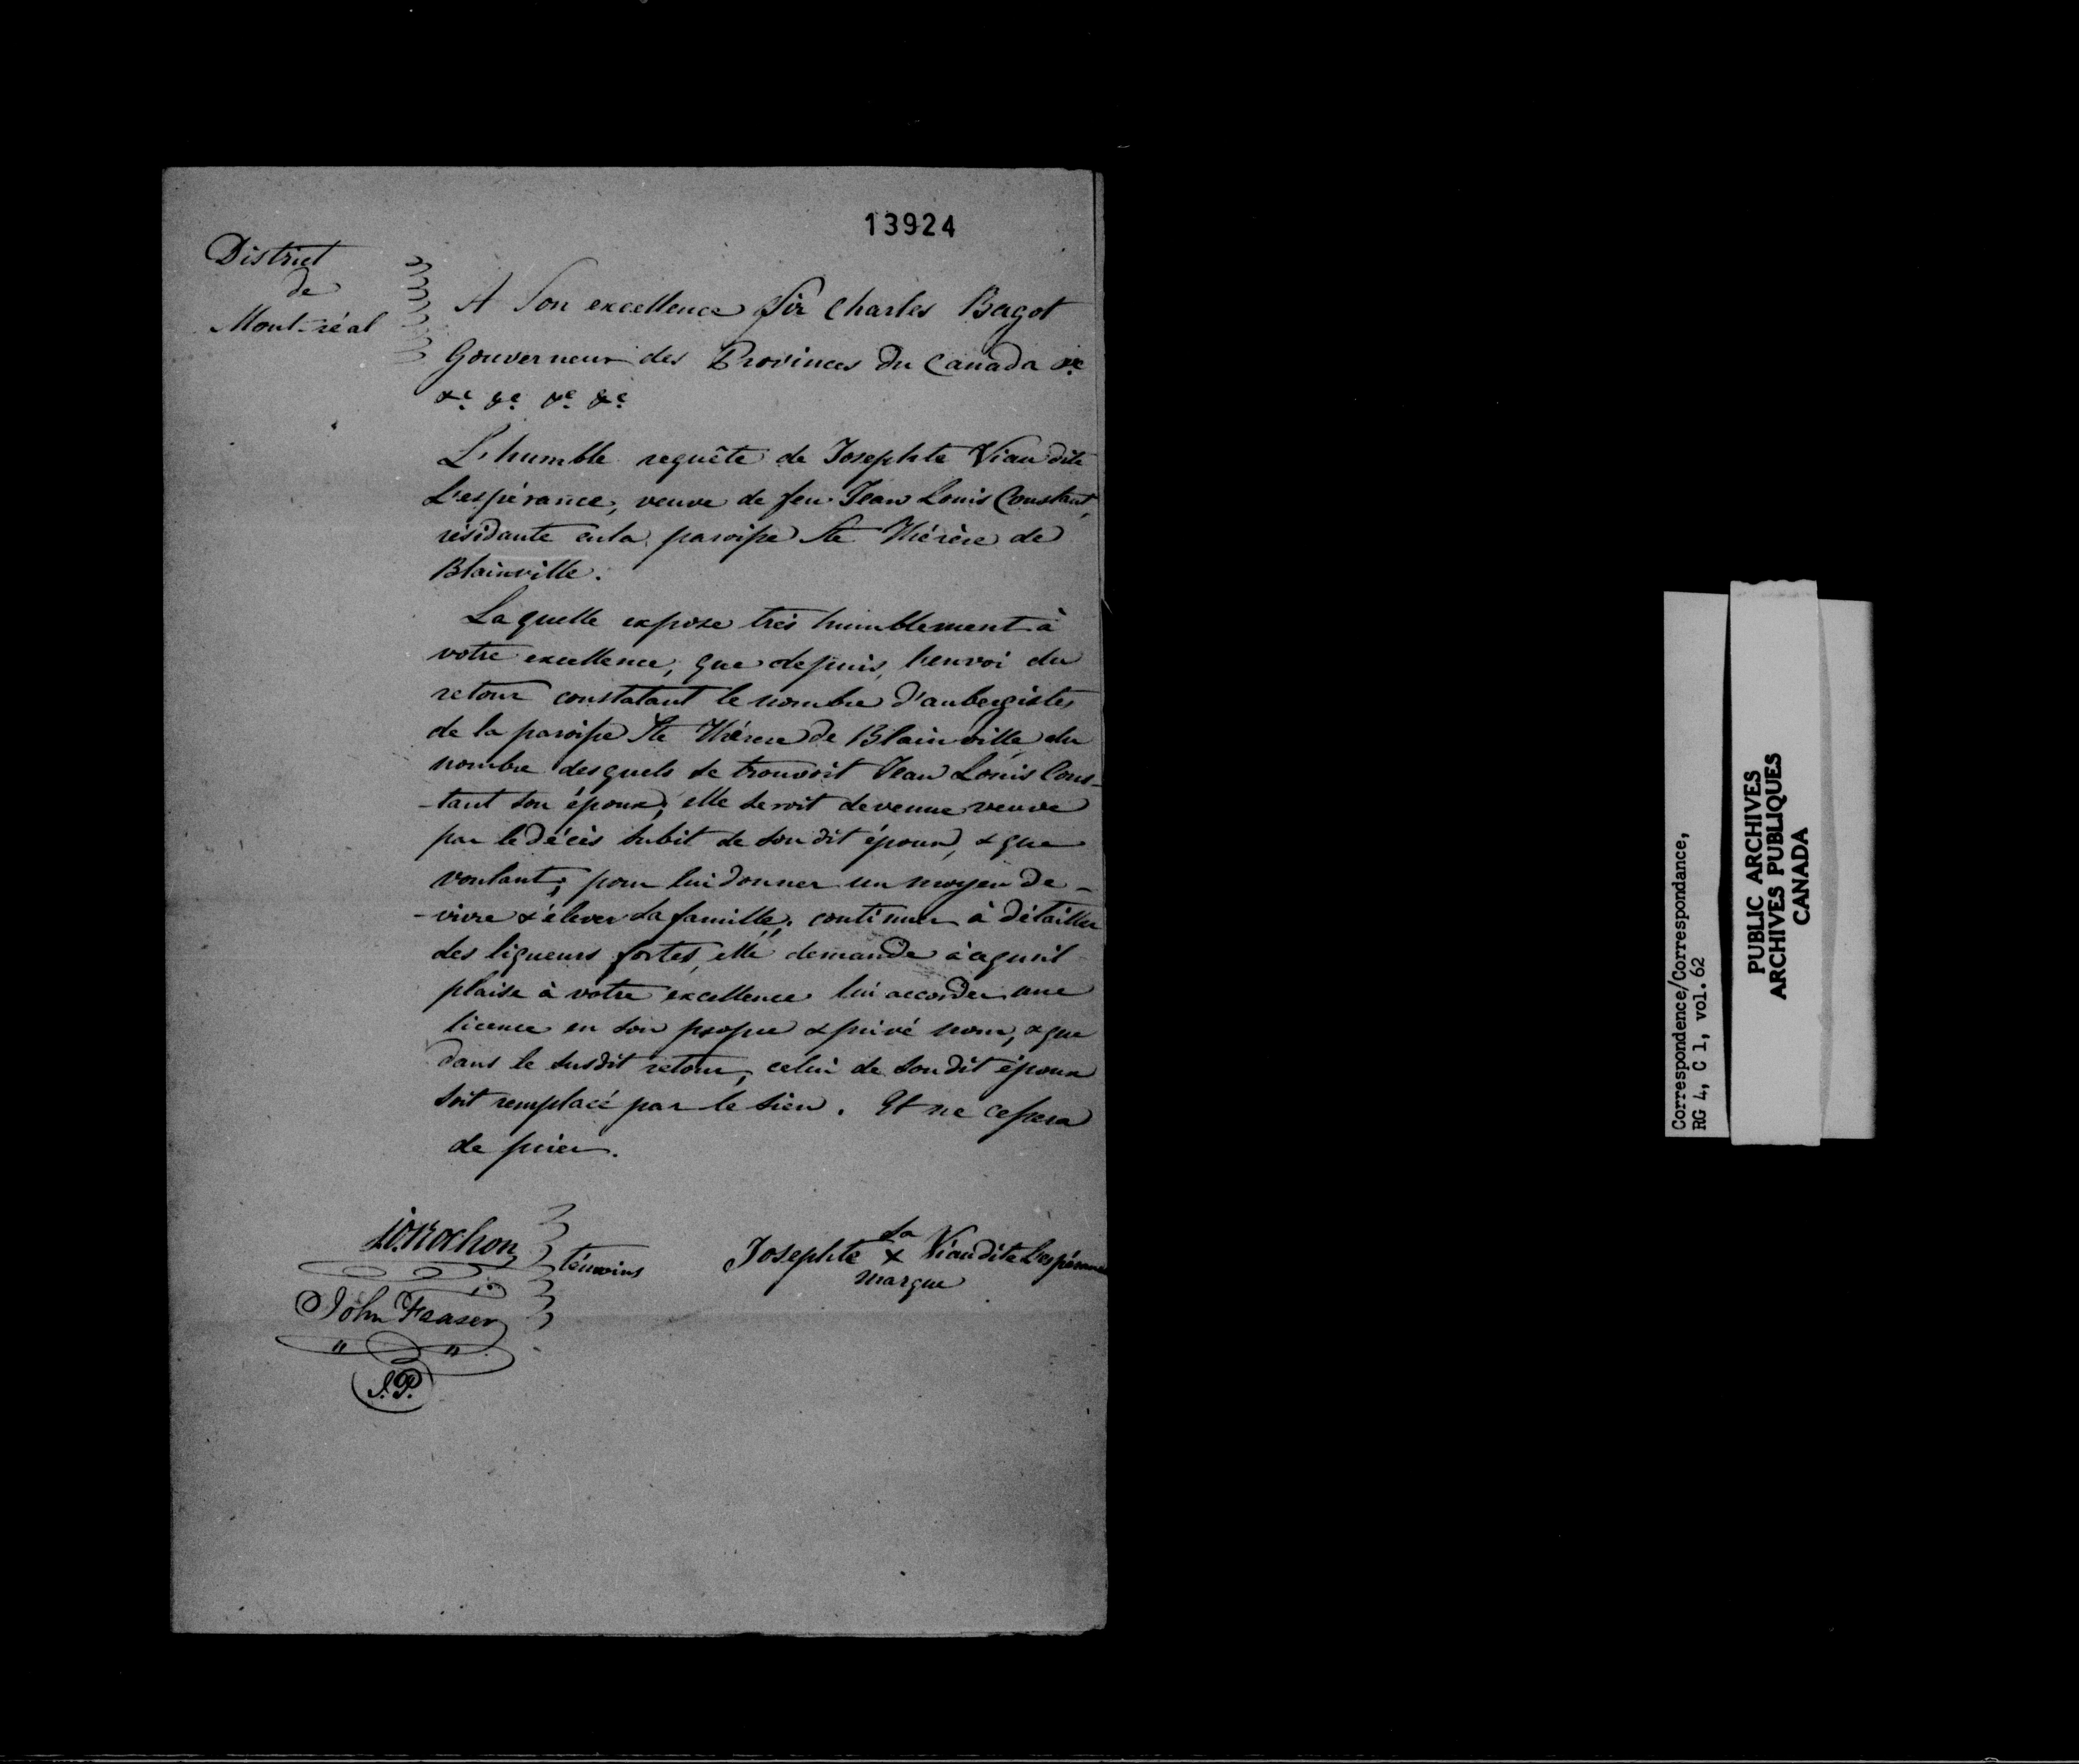 13924
District
de
Mont-réal
A Son excellence Sir Charles Bagot
Gouverneur des Provinces du Canada &c
&c &c &c &c
L'humble requête de Josephte Viau dite
L'espérance, veuve de feu Jean Louis Constant,
résidante en la paroisse Ste Thérèse de
Blainville.
Laquelle expose très humblement à
votre excellence, que depuis, l'envoi du
retour constatant le nombre d'aubergistes
de la paroisse Ste Thérese de Blainville du
nombre desquels se trouvoit Jean Louis Cons-
-tant son époux, elle seroit devenue veuve
par le décès subit de son dit époux, & que
voulant, pour lui donner un moyen de-
-vivre & élever sa famille, continuer à détailler
des liqueurs fortes, elle demande à cequ'il
plaise à votre excellence lui accorder une
licence en son propre & privé nom, & que
dans le susdit retour, celui de son dit époux
soit remplacé par le sien. Et ne cessera
de prier.
Rochon
témoins
John Fraser
J.P.
sa
Josephte x Viau dite Lespérance
marque
Correspondence/Correspondance,
RG 4, C 1, vol. 62
PUBLIC ARCHIVES
ARCHIVES PUBLIQUES
CANADA